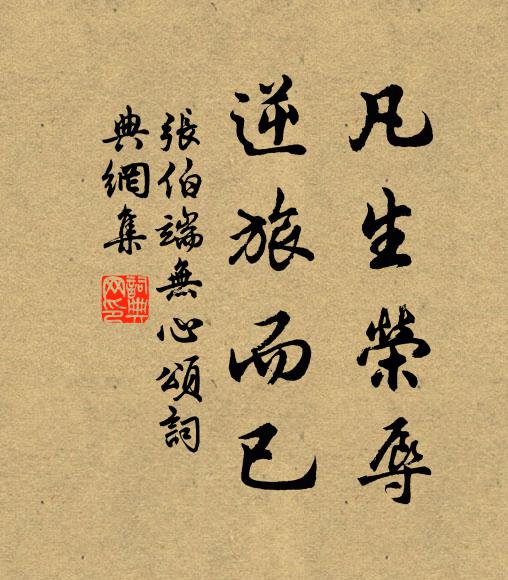 凡生榮辱
逆旅而已
張伯端無心頌詞
典網集
詞典網印